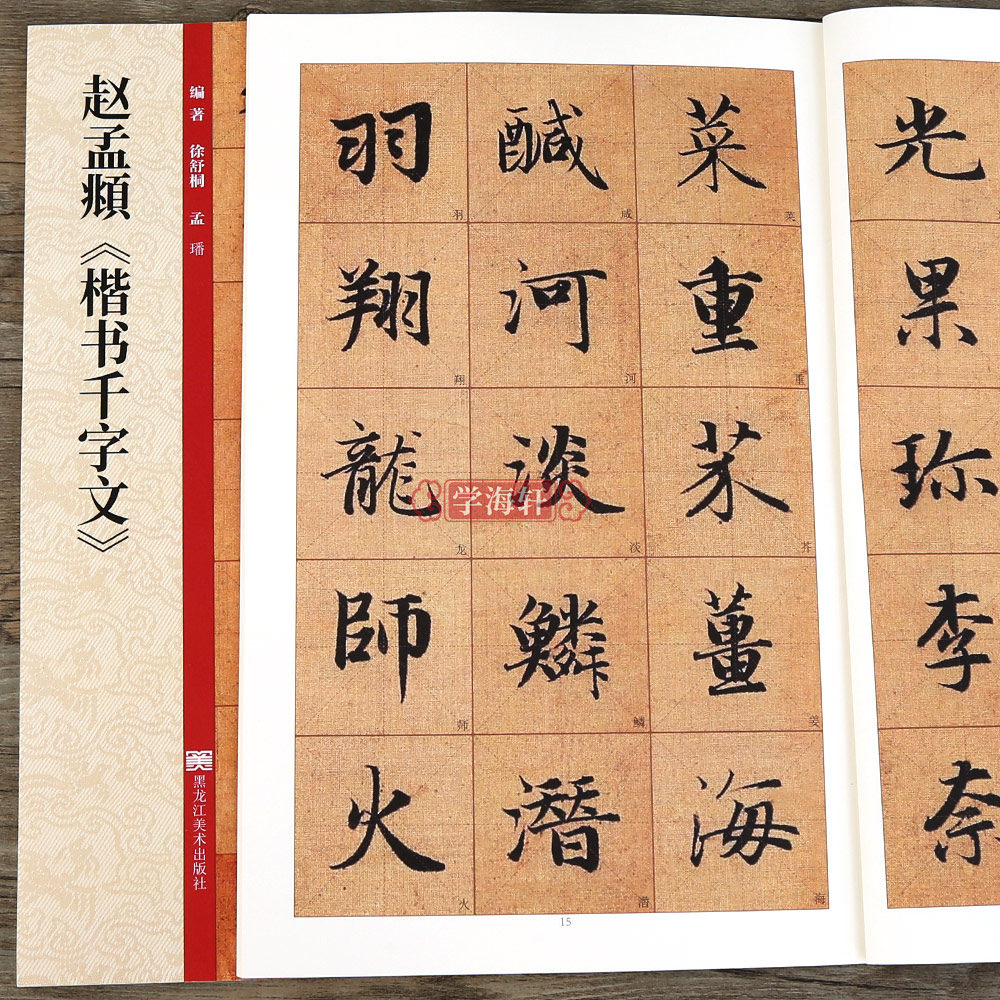 赵孟頫《楷书千字文》
编著 徐舒桐 孟璠
黑龙江美术出版社
光果珍李奈
菜重芥薑海
菜 重 芥 姜 海
鹹河淡鱗潛
咸 河 淡 鳞 潜
羽翔龍師火
羽 翔 龙 师 火
15
学海轩